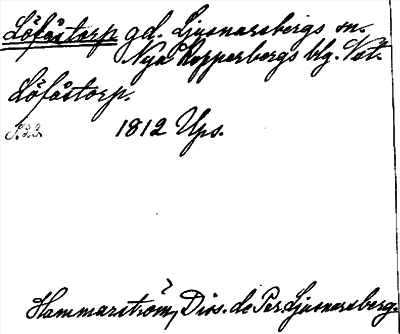 Löfåstorp gd. Ljusnarsbergs sn.
Nya Kopperbergs blg. Vet.
Löfåstorp.
S. 22 1812 Ups.
Hammarström, Diss. de Par. Ljusnarsberg.